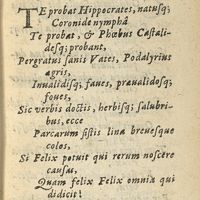 TE probat Hippocrates, natusq;
Coronide nymphâ
Te probat, & Phœbus Castali-
desq; probant,
Pergratus sanis Vates, Podalyrius
ægris,
Inualidisq; faues, præualidosq;
foues,
Sic verbis doctis, herbisq; salubri-
bus, ecce
Parcarum sistis lina breuesque
colos,
Si Felix potuit qui rerum noscere
causas,
Quàm felix Felix omnia qui
didicit!